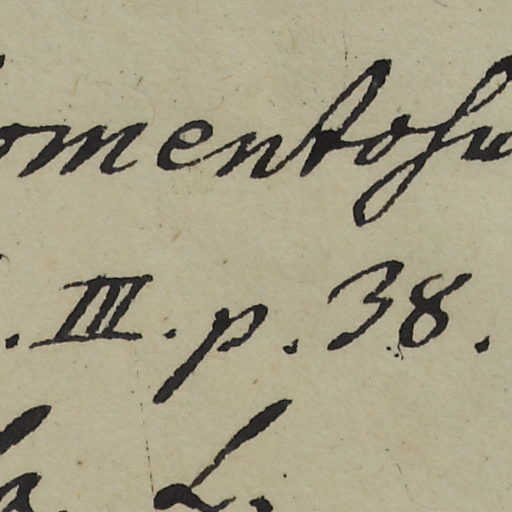 omentosu
. III. p. 38.
a. L.